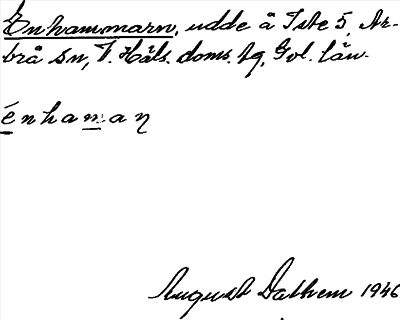 Enhammarn, udde å Iste 5, Ar-
brå sn, V. Häls. doms. tg, Gvl. län.
énhaman
August Dathem 1946